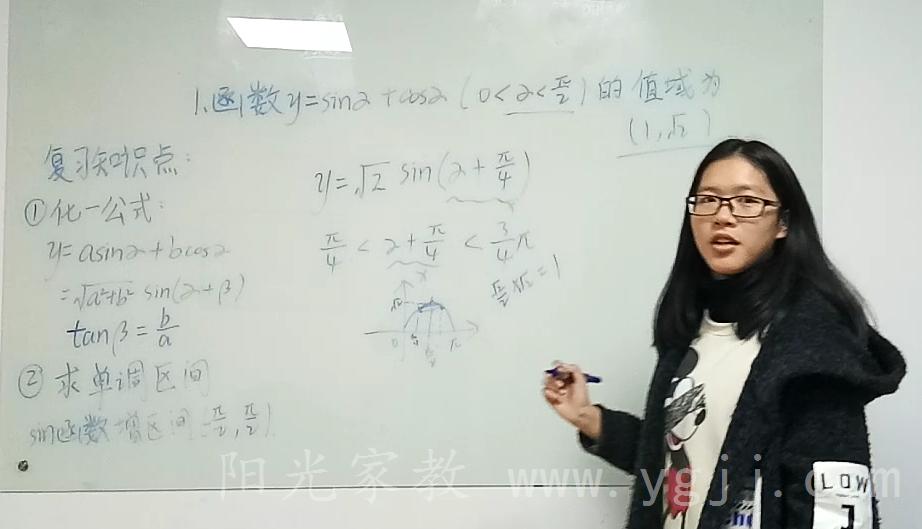 1.函数y=sin2+cos2(0<2<π/2)的值域为
(1,√2)
复习知识点:
①化一公式:
y=asin2+bcos2
=√a²+b² sin(2+β)
tanβ=b/a
②求单调区间
sin函数增区间[-π/2,π/2]
y=√2 sin(2+π/4)
π/4<2+π/4<3/4π
x
√2/2×√2=1
0
π
阳光家教 www.ygjj.com
LOW
1